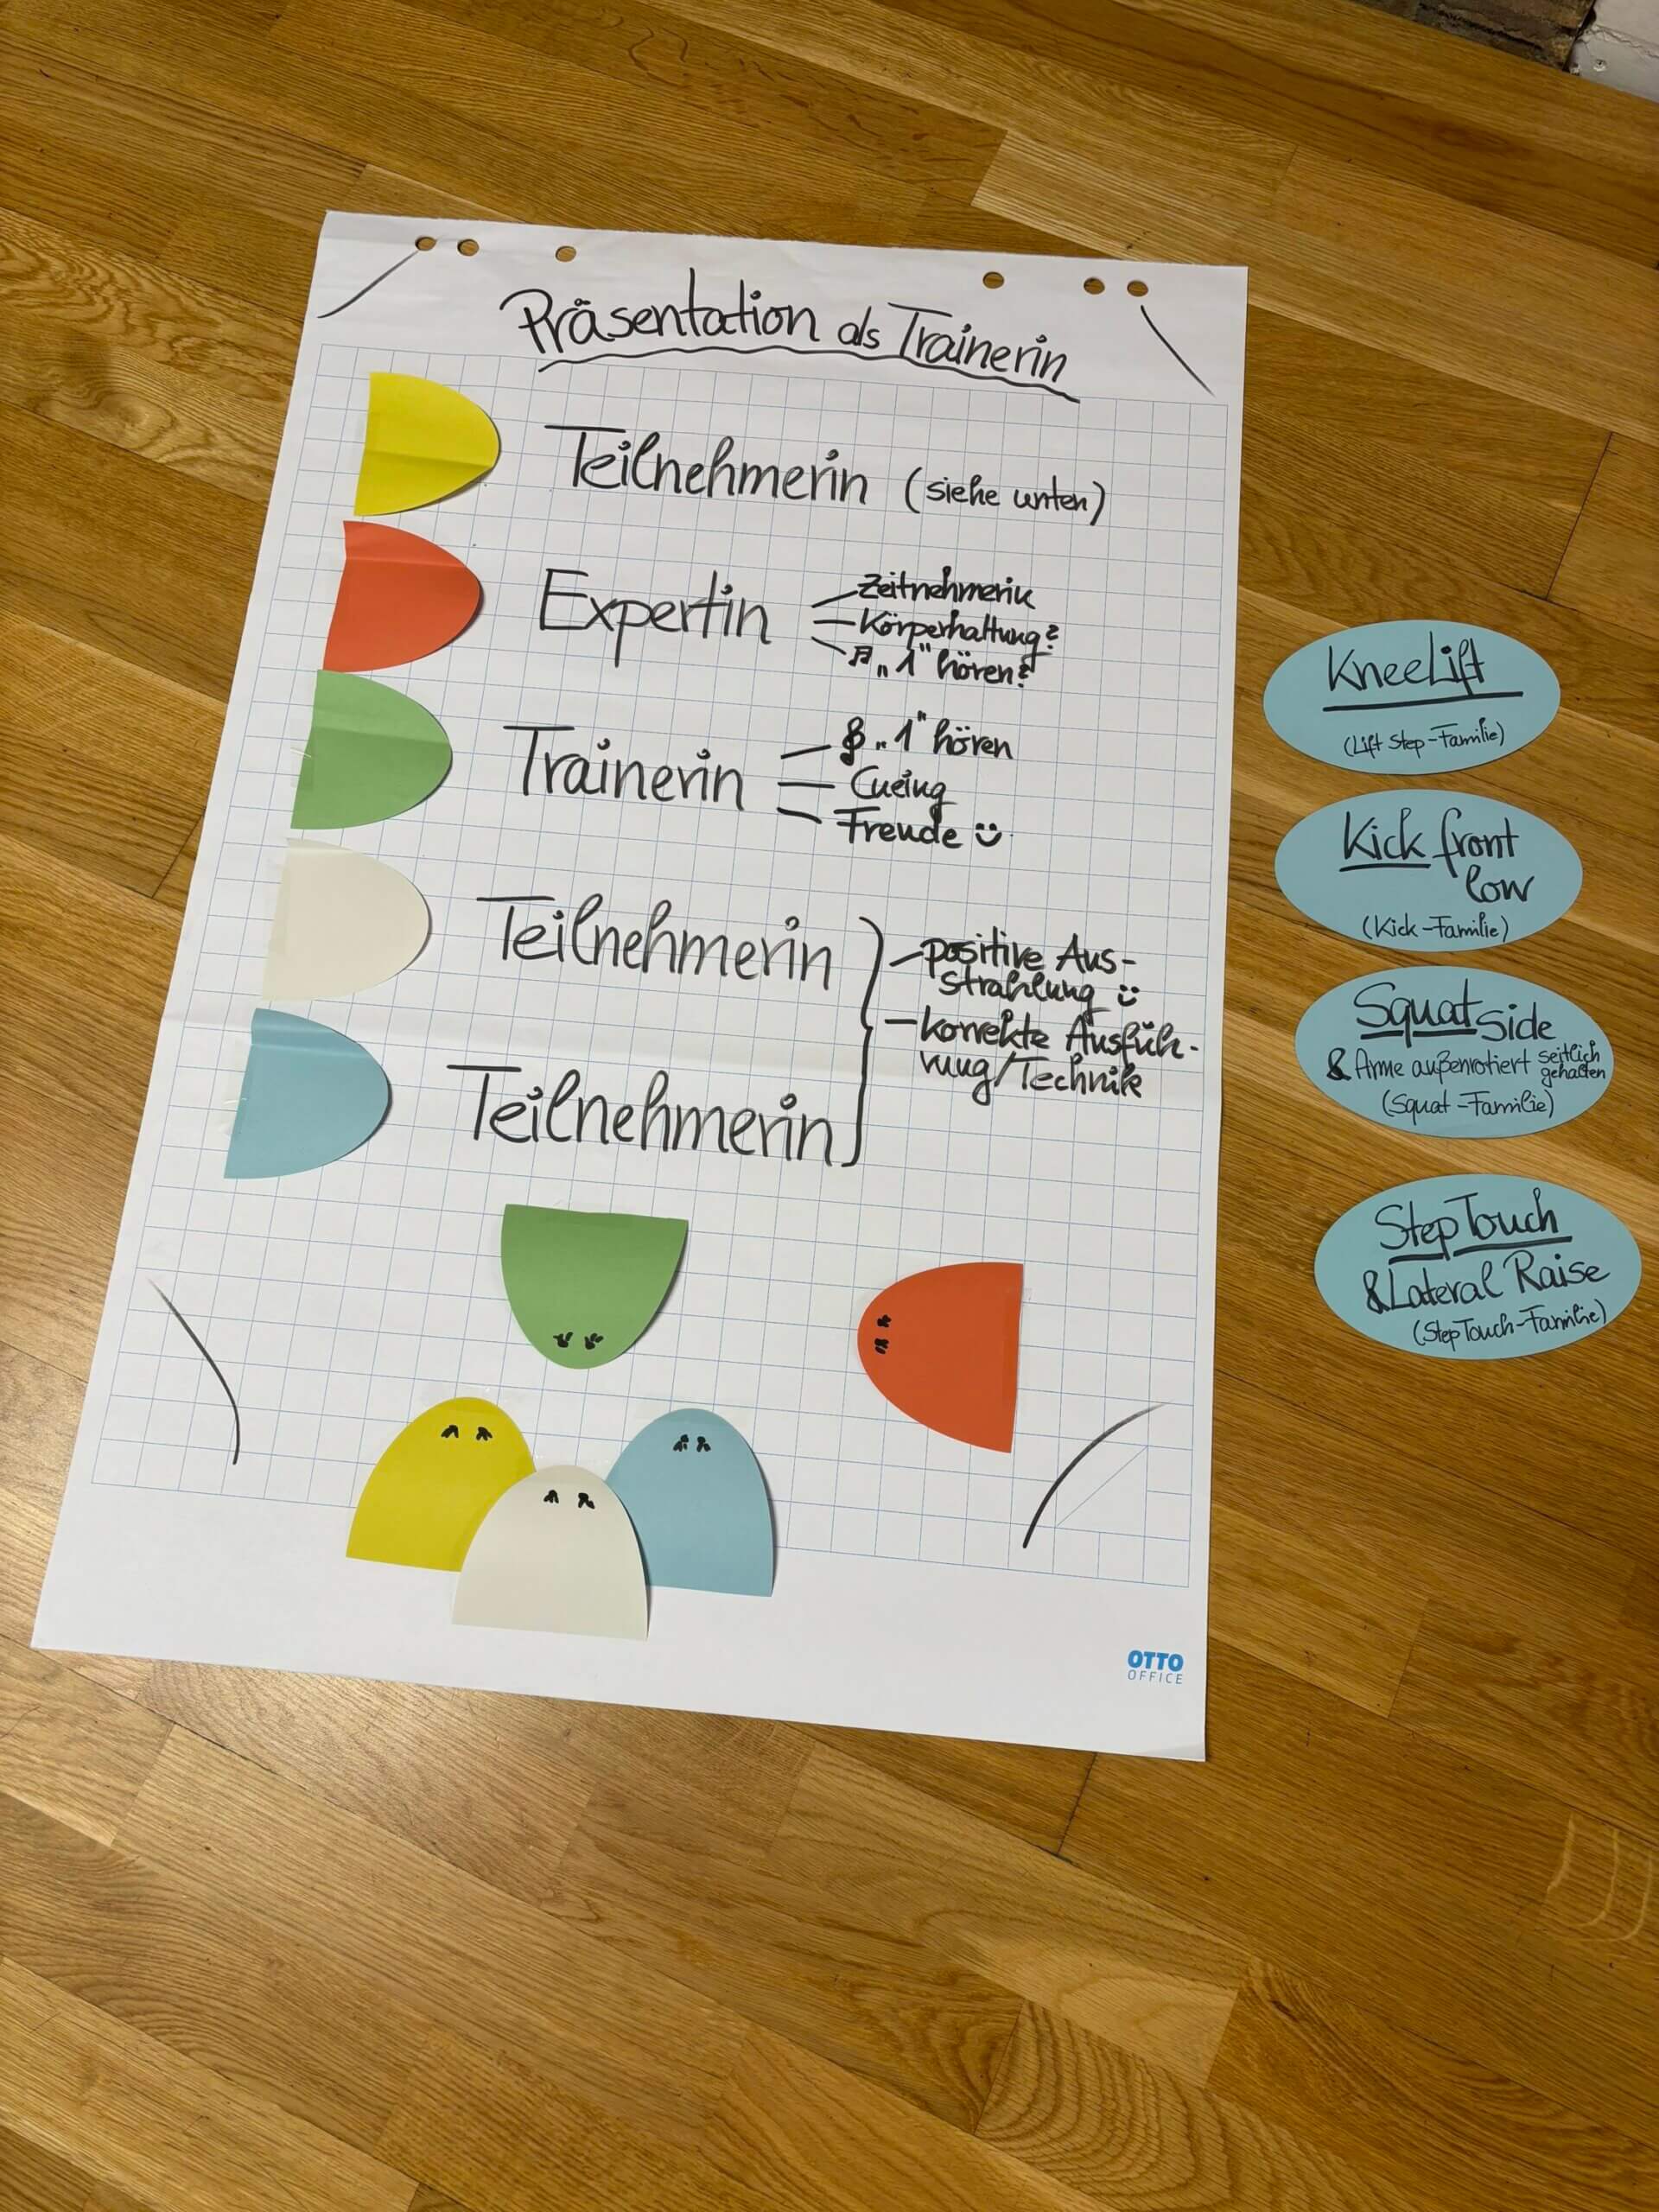 Präsentation als Trainerin
Teilnehmerin (siehe unten)
Expertin
Zeitnehmerin
Körperhaltung?
"1" hören?
Trainerin
"1" hören
Cueing
Freude
Teilnehmerin
Teilnehmerin
positive Aus-
strahlung
korrekte Ausfüh-
rung/Technik
OTTO
OFFICE
KneeLift
(Lift Step-Familie)
Kick front
low
(Kick-Familie)
Squat Side
& Arme außenrotiert seitlich
gehalten
(Squat-Familie)
Step Touch
& Lateral Raise
(Step Touch-Familie)